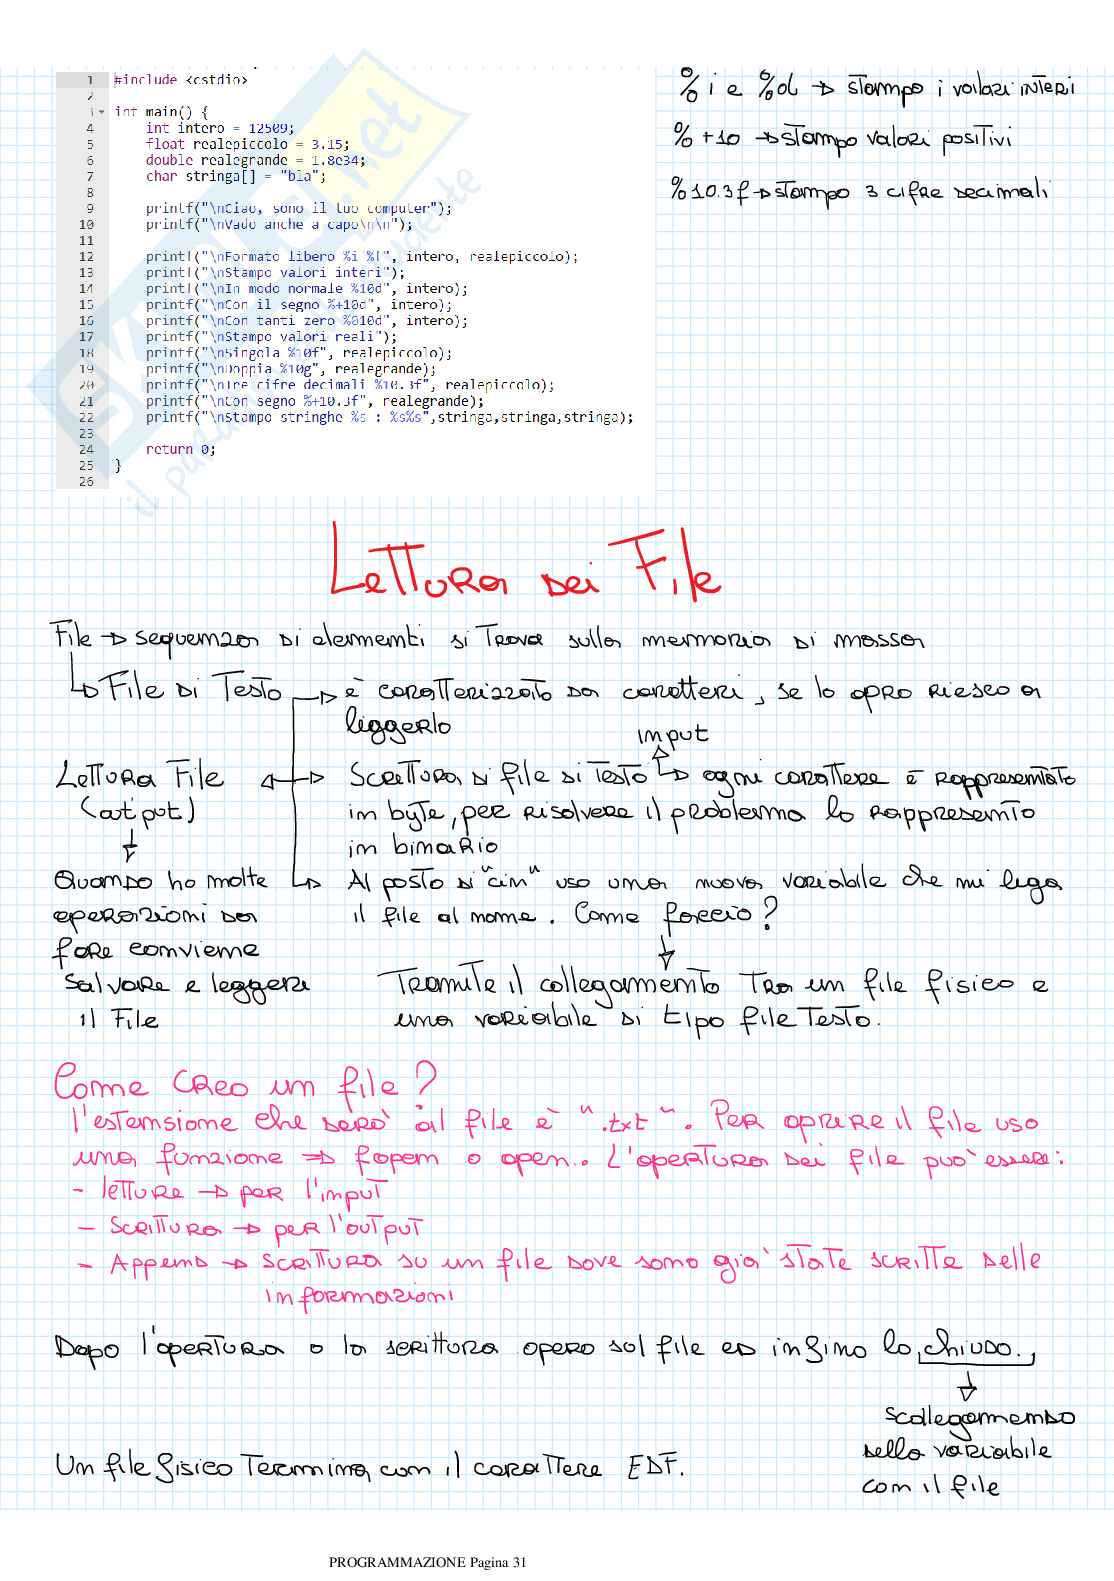 1 #include <cstdio>
2
3 int main() {
4 int intero = 12509;
5 float realepiccolo = 3.15;
6 double realegrande = 1.8e34;
7 char stringa[] = "bla";
8
9 printf("\nCiao, sono il tuo computer");
10 printf("\nVado anche a capo\n\n");
11
12 printf("\nFormato libero %i %f", intero, realepiccolo);
13 printf("\nStampo valori interi");
14 printf("\nIn modo normale %10d", intero);
15 printf("\nCon il segno %+10d", intero);
16 printf("\nCon tanti zero %010d", intero);
17 printf("\nStampo valori reali");
18 printf("\nSingola %10f", realepiccolo);
19 printf("\nDoppia %10g", realegrande);
20 printf("\nTre cifre decimali %10.3f", realepiccolo);
21 printf("\nCon segno %+10.3f", realegrande);
22 printf("\nStampo stringhe %s : %s%s",stringa,stringa,stringa);
23
24 return 0;
25 }
26
%i e %d → stampo i valori interi
%+10 → stampo valori positivi
%10.3f → stampo 3 cifre decimali
Lettura dei File
File → sequenza di elementi si trova sulla memoria di massa
File di Testo → è caratterizzato da caratteri, se lo apro riesco a
leggerlo
input
Lettura File ← → Scrittura di file di testo → ogni carattere è rappresentato
(output) in byte, per risolvere il problema lo rappresento
in binario
Quando ho molte → Al posto di "cin" uso una nuova variabile che mi lega
operazioni da il file al nome. Come faccio?
fare conviene
salvare e leggere Tramite il collegamento tra un file fisico e
il File una variabile di tipo file testo.
Come creo un file?
l'estensione che darò al file è ".txt". Per aprire il file uso
una funzione ⇒ fopen o open. L'apertura dei file può essere:
- letture → per l'input
- Scrittura → per l'output
- Append → scrittura su un file dove sono già state scritte delle
informazioni
Dopo l'apertura o la scrittura opero sul file ed infino lo chiudo.
scollegamendo
della variabile
con il file
Un file fisico termina con il carattere EOF.
PROGRAMMAZIONE Pagina 31